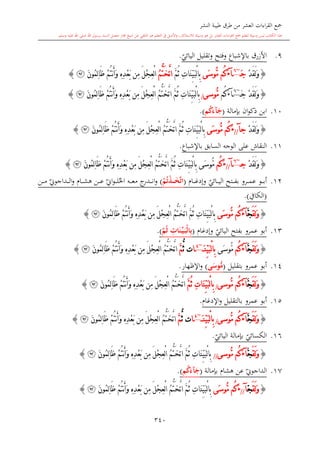 جمع القراءات العشر من طرق طيبة النشر
٩. الأزرق بالإشباع وفتح وتقليل اليائيّ.
﴿ وَلَقَدْ جَآءَكُم مُّوسَىٰ بِالْبَيِّنَاتِ ثُمَّ اتَّخَذْتُمُ الْعِجْلَ مِنْ بَعْدِهِ وَأَنْتُمْ ظَالِمُونَ ﴾
﴿ وَلَقَدْ جَآءَكُم مُّوسَىٰ بِالْبَيِّنَاتِ ثُمَّ اتَّخَذْتُمُ الْعِجْلَ مِنْ بَعْدِهِ وَأَنْتُمْ ظَالِمُونَ ﴾
١٠. ابن ذكوان بإمالة (جَآءَكُم).
﴿ وَلَقَدْ جَآءَكُم مُّوسَىٰ بِالْبَيِّنَاتِ ثُمَّ اتَّخَذْتُمُ الْعِجْلَ مِنْ بَعْدِهِ وَأَنْتُمْ ظَالِمُونَ ﴾
١١. النقاش على الوجه السابق بالإشباع.
﴿ وَلَقَدْ جَآءَكُم مُّوسَىٰ بِالْبَيِّنَاتِ ثُمَّ اتَّخَذْتُمُ الْعِجْلَ مِنْ بَعْدِهِ وَأَنْتُمْ ظَالِمُونَ ﴾
١٢. أبو عمرو بفتح اليائيّ وإدغام (اتَّخَذتُّمُ) واندرج معه الحلوانيّ عن هشام والداجونيّ من
(الكافي).
﴿ وَلَقَد جَّآءَكُم مُّوسَىٰ بِالْبَيِّنَاتِ ثُمَّ اتَّخَذتُّمُ الْعِجْلَ مِنْ بَعْدِهِ وَأَنْتُمْ ظَالِمُونَ ﴾
١٣. أبو عمرو بفتح اليائيّ وإدغام (بِالْبَيِّنَاتِ ثُمَّ).
﴿ وَلَقَد جَّآءَكُم مُّوسَىٰ بِالْبَيِّنَات ثُّمَّ اتَّخَذتُّمُ الْعِجْلَ مِنْ بَعْدِهِ وَأَنْتُمْ ظَالِمُونَ ﴾
١٤. أبو عمرو بتقليل (مُوسَىٰ) والإظهار.
﴿ وَلَقَد جَّآءَكُم مُّوسَىٰ بِالْبَيِّنَاتِ ثُمَّ اتَّخَذتُّمُ الْعِجْلَ مِنْ بَعْدِهِ وَأَنْتُمْ ظَالِمُونَ ﴾
١٥. أبو عمرو بالتقليل والإدغام.
﴿ وَلَقَد جَّآءَكُم مُّوسَىٰ بِالْبَيِّنَات ثُّمَّ اتَّخَذتُّمُ الْعِجْلَ مِنْ بَعْدِهِ وَأَنْتُمْ ظَالِمُونَ ﴾
١٦. الكسائيّ بإمالة اليائيّ.
﴿ وَلَقَد جَّآءَكُم مُّوسَىٰ بِالْبَيِّنَاتِ ثُمَّ اتَّخَذتُّمُ الْعِجْلَ مِنْ بَعْدِهِ وَأَنْتُمْ ظَالِمُونَ ﴾
١٧. الداجونيّ عن هشام بإمالة (جَآءَكُم).
﴿ وَلَقَد جَّآءَكُم مُّوسَىٰ بِالْبَيِّنَاتِ ثُمَّ اتَّخَذتُّمُ الْعِجْلَ مِنْ بَعْدِهِ وَأَنْتُمْ ظَالِمُونَ ﴾
٣٤٠